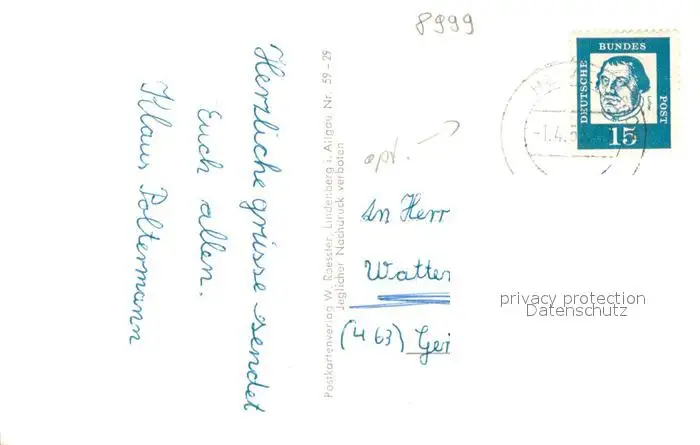 8999
Herzliche grüsse sendet
Euch allen.
Klaus Poltermann
Postkartenverlag W. Roessler, Lindenberg i. Allgäu Nr. 59 - 29
Jeglicher Nachdruck verboten
DEUTSCHE
BUNDES
POST
15
-1.4.
An Herr
Watter
(463) Gei
privacy protection
Datenschutz